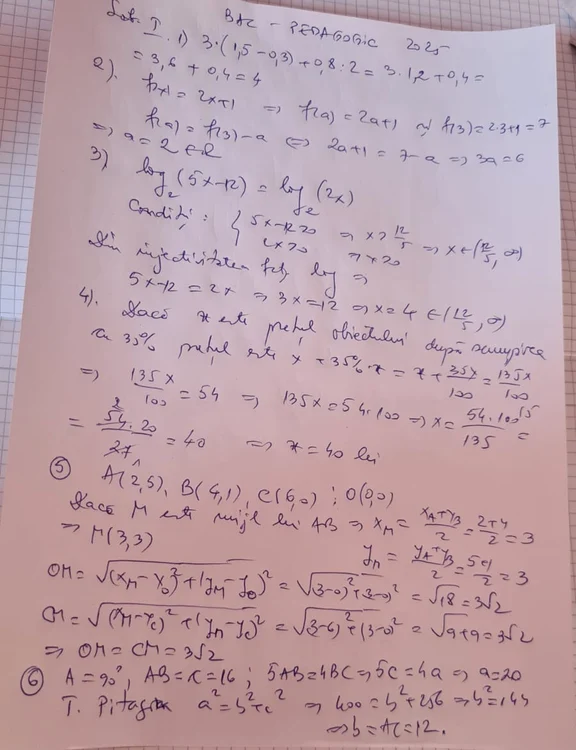 Sub. I. BAC - PEDAGOGIC 2025
1) 3·(1,5-0,3)+0,8:2=3·1,2+0,4=
=3,6+0,4=4
2). f(x)=2x+1 ⇒ f(a)=2a+1 și f(3)=2·3+1=7
f(a)=f(3)-a ⇔ 2a+1=7-a ⇒ 3a=6
⇒ a=2∈R
3) log₂(5x-12)=log₂(2x)
Condiții: { 5x-12>0 ⇒ x>12/5 ⇒ x∈(12/5,∞)
2x>0 ⇒ x>0
Din injectivitatea fcț. log ⇒
5x-12=2x ⇒ 3x=12 ⇒ x=4∈(12/5,∞)
4). Dacă x este prețul obiectului după scumpirea
cu 35% prețul este x+35%·x=x+35x/100=135x/100
⇒ 135x/100=54 ⇒ 135x=54·100 ⇒ x=54·100/135=
=54·20/27=40 ⇒ x=40 lei
5 A(2,5), B(4,1), C(6,0); O(0,0)
Dacă M este mijl lui AB ⇒ x_M=(x_A+x_B)/2=(2+4)/2=3
⇒ M(3,3) y_M=(y_A+y_B)/2=(5+1)/2=3
OM=√((x_M-x_O)²+(y_M-y_O)²)=√((3-0)²+(3-0)²)=√18=3√2
CM=√((x_M-x_C)²+(y_M-y_C)²)=√((3-6)²+(3-0)²)=√(9+9)=3√2
⇒ OM=CM=3√2
6 A=90°, AB=c=16; 5AB=4BC ⇒ 5c=4a ⇒ a=20
T. Pitagora a²=b²+c² ⇒ 400=b²+256 ⇒ b²=144
⇒ b=AC=12.